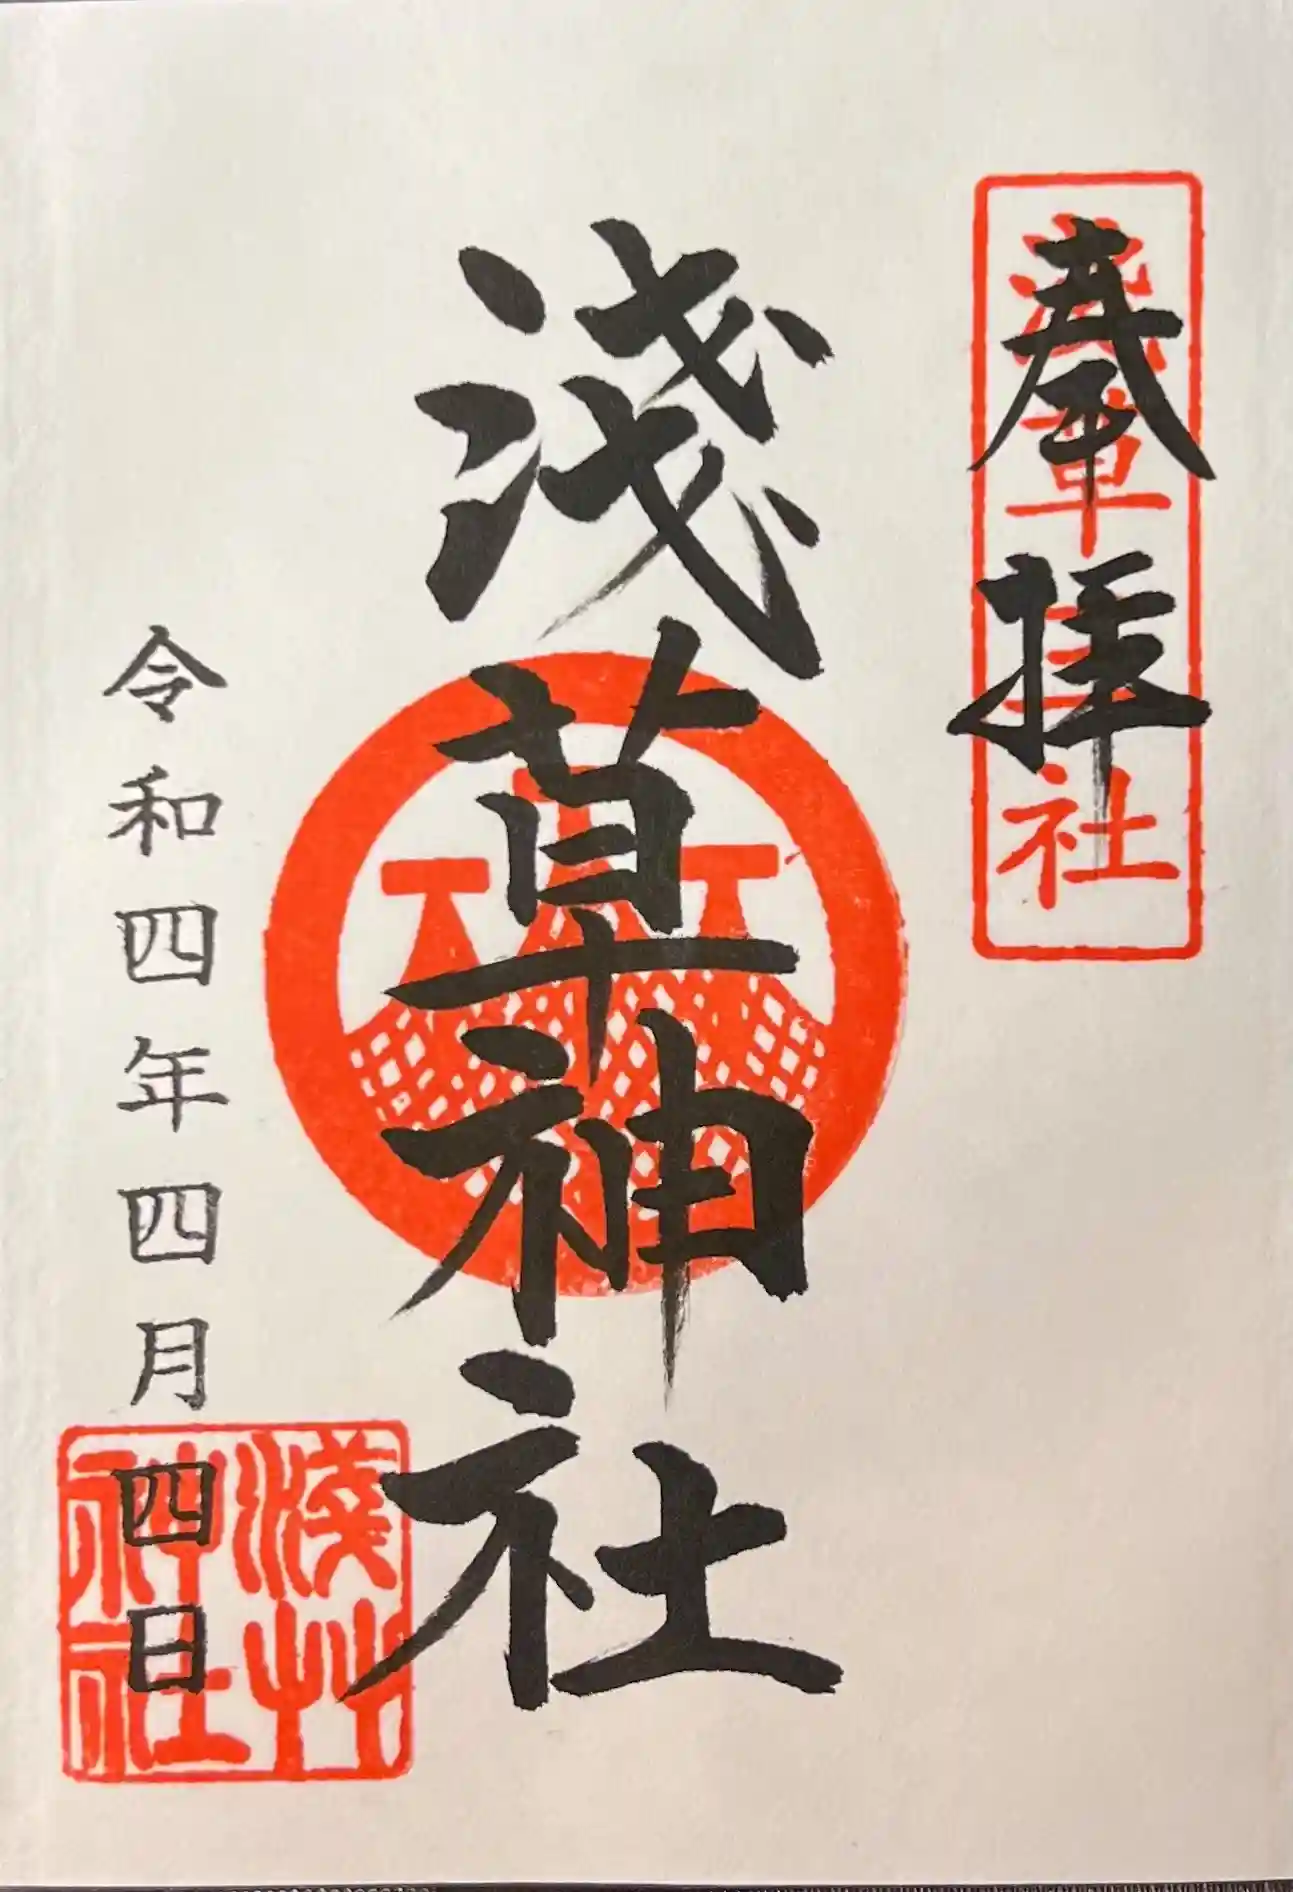 奉拝
浅草三社
淺草神社
令和四年四月四日
淺艸
神社